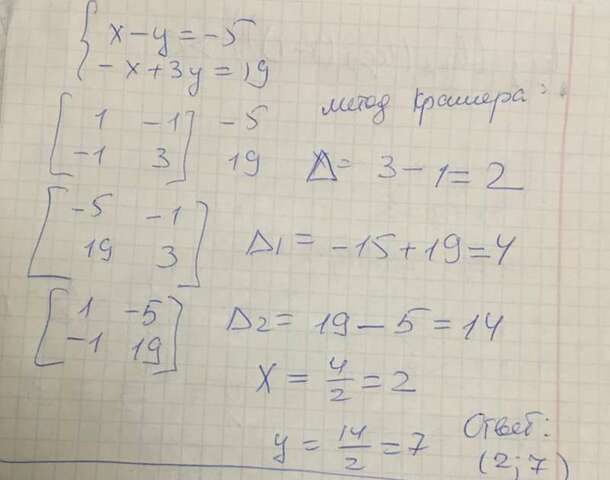 x-y=-5
-x+3y=19
метод Крамера:
1 -1 -5
-1 3 19
Δ= 3-1=2
-5 -1
19 3
Δ1= -15+19=4
1 -5
-1 19
Δ2= 19-5=14
x = 4/2 = 2
y = 14/2 = 7
Ответ:
(2;7)